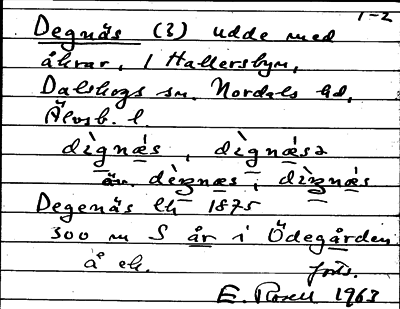 1-2
Degnäs (3) udde med
åkrar, i Hallersbyn,
Dalskogs sn. Nordals hd,
Älvsb. l.
dìgnæ̀s, dìgnæ̀sə
äv. dèi̯næs, dìgnæ̀s
Degenäs Ek 1875
300 m S år i Ödegården
å ek. forts.
E. Rosell 1963